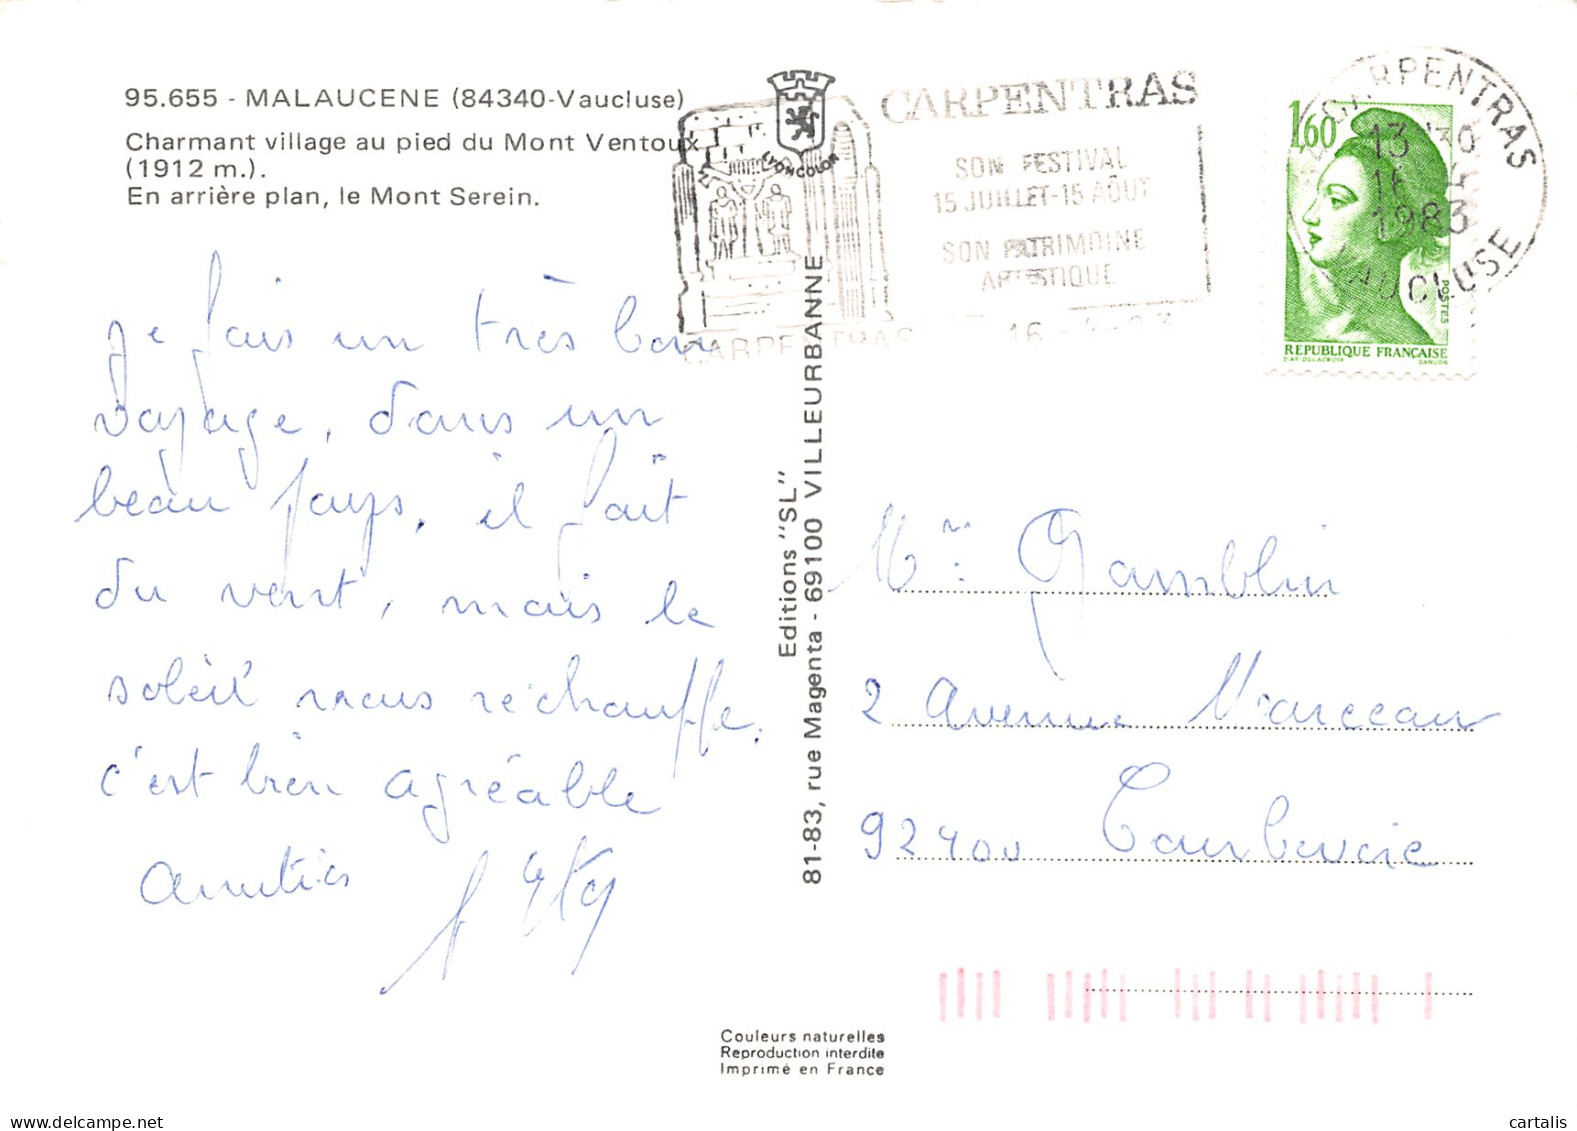 95.655 - MALAUCENE (84340-Vaucluse)
Charmant village au pied du Mont Ventoux
(1912 m.).
En arrière plan, le Mont Serein.
LYONCOLOR
CARPENTRAS
SON FESTIVAL
15 JUILLET-15 AOUT
SON PATRIMOINE
ARTISTIQUE
CARPENTRAS
16
CARPENTRAS
13 30
16
1983
VAUCLUSE
1,60
POSTES
REPUBLIQUE FRANÇAISE
D'AP. DELACROIX GANDON
Je fais un très bon
voyage, dans un
beau pays, il fait
du vent, mais le
soleil nous réchauffe.
c'est bien agréable
Amitiés
Editions "SL"
81-83, rue Magenta - 69100 VILLEURBANNE
Mr: Gamblin
2 Avenue Marceau
92400 Courbevoie
Couleurs naturelles
Reproduction interdite
Imprimé en France
delcampe.net
cartalis